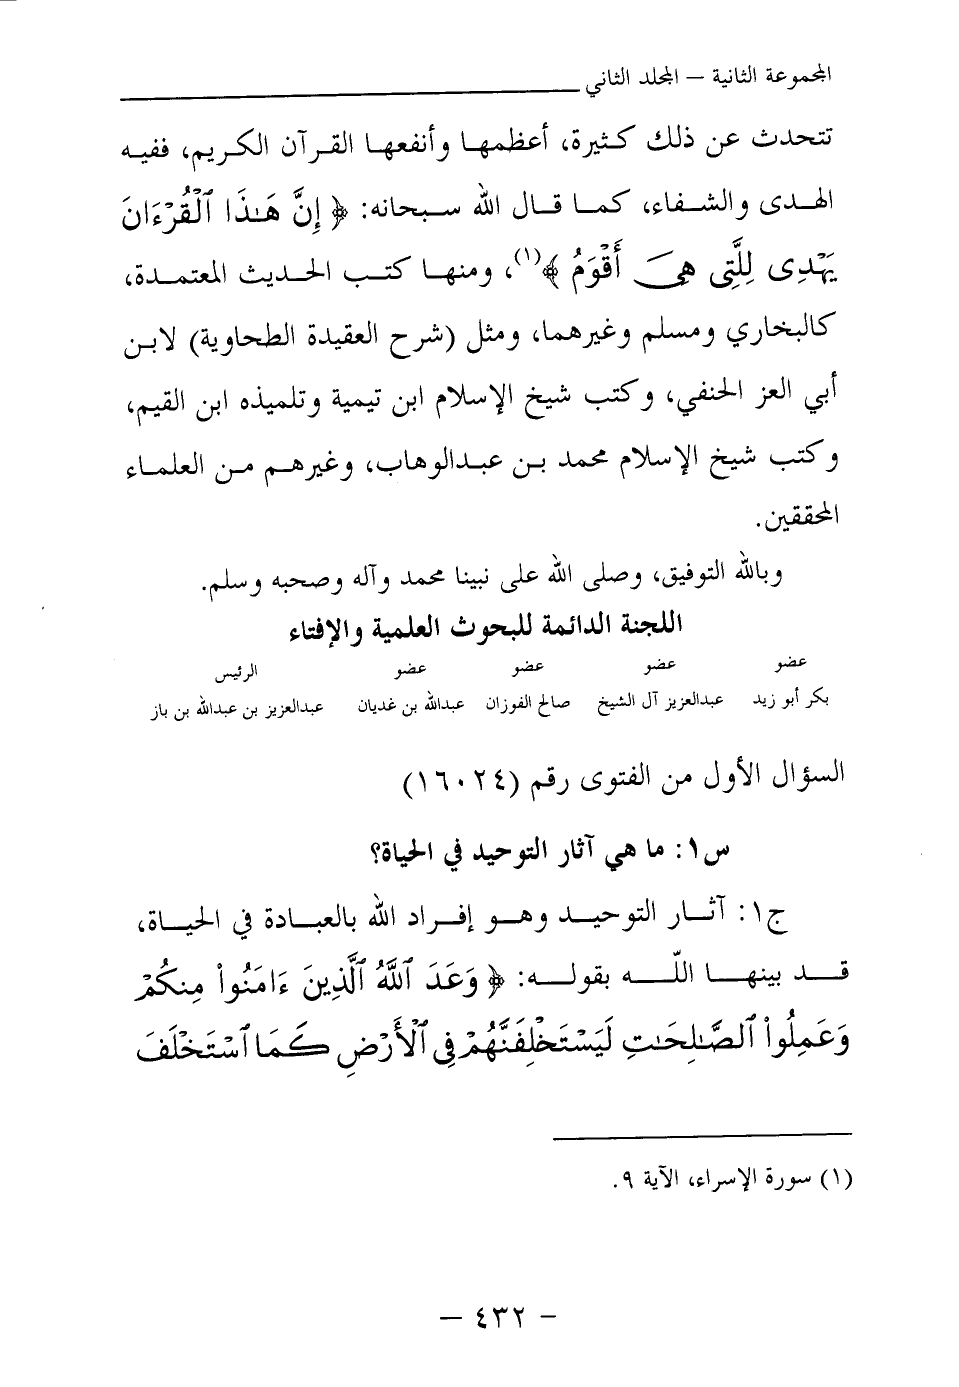 المجموعة الثانية – المجلد الثاني
تتحدث عن ذلك كثيرة، أعظمها وأنفعها القرآن الكريم، ففيه
الهدى والشفاء، كما قال الله سبحانه: ﴿ إِنَّ هَٰذَا ٱلْقُرْءَانَ
يَهْدِى لِلَّتِى هِىَ أَقْوَمُ ﴾(١)، ومنها كتب الحديث المعتمدة،
كالبخاري ومسلم وغيرهما، ومثل (شرح العقيدة الطحاوية) لابن
أبي العز الحنفي، وكتب شيخ الإسلام ابن تيمية وتلميذه ابن القيم،
وكتب شيخ الإسلام محمد بن عبدالوهاب، وغيرهم من العلماء
المحققين.
وبالله التوفيق، وصلى الله على نبينا محمد وآله وصحبه وسلم.
اللجنة الدائمة للبحوث العلمية والإفتاء
عضو عضو عضو عضو الرئيس
بكر أبو زيد عبدالعزيز آل الشيخ صالح الفوزان عبدالله بن غديان عبدالعزيز بن عبدالله بن باز
السؤال الأول من الفتوى رقم (١٦٠٢٤)
س١: ما هي آثار التوحيد في الحياة؟
ج١: آثار التوحيد وهو إفراد الله بالعبادة في الحياة،
قد بينها اللّه بقوله: ﴿ وَعَدَ ٱللَّهُ ٱلَّذِينَ ءَامَنُوا۟ مِنكُمْ
وَعَمِلُوا۟ ٱلصَّٰلِحَٰتِ لَيَسْتَخْلِفَنَّهُمْ فِى ٱلْأَرْضِ كَمَا ٱسْتَخْلَفَ
(١) سورة الإسراء، الآية ٩.
– ٤٣٢ –